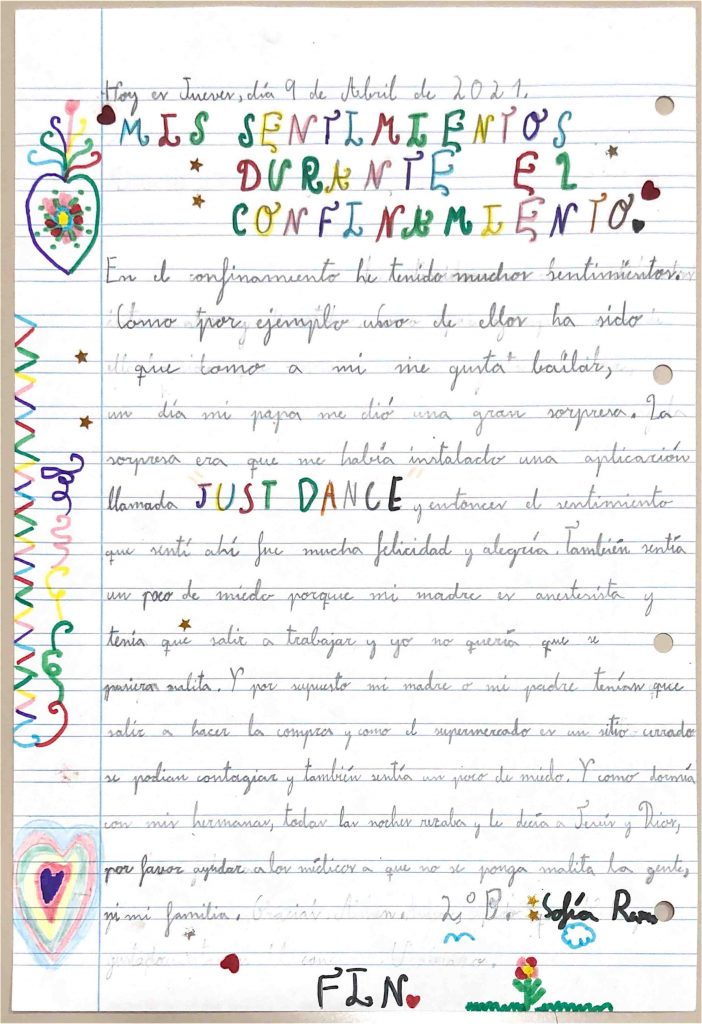 Hoy es Jueves, día 9 de Abril de 2021.
MIS SENTIMIENTOS
DURANTE El
CONFINAMIENTO.
En el confinamiento he tenido muchos sentimientos.
Como por ejemplo uno de ellos, ha sido
que como a mi me gusta bailar,
un día mi papa me dió una gran sorpresa. La
sorpresa era que me había instalado una aplicación
llamada JUST DANCE y entonces el sentimiento
que sentí ahí fue mucha felicidad y alegría. También sentía
un poco de miedo porque mi madre es anestesista y
tenía que salir a trabajar y yo no quería que se
pusiera malita. Y por supuesto mi madre o mi padre tenían que
salir a hacer la compra y como el supermercado es un sitio cerrado
se podían contagiar y también sentía un poco de miedo. Y como dormía
con mis hermanas, todas las noches rezaba y le decía a Jesús y Dios,
por favor ayudar a los médicos a que no se ponga malita la gente,
ni mi familia. 2.º B. Sofía
FIN.